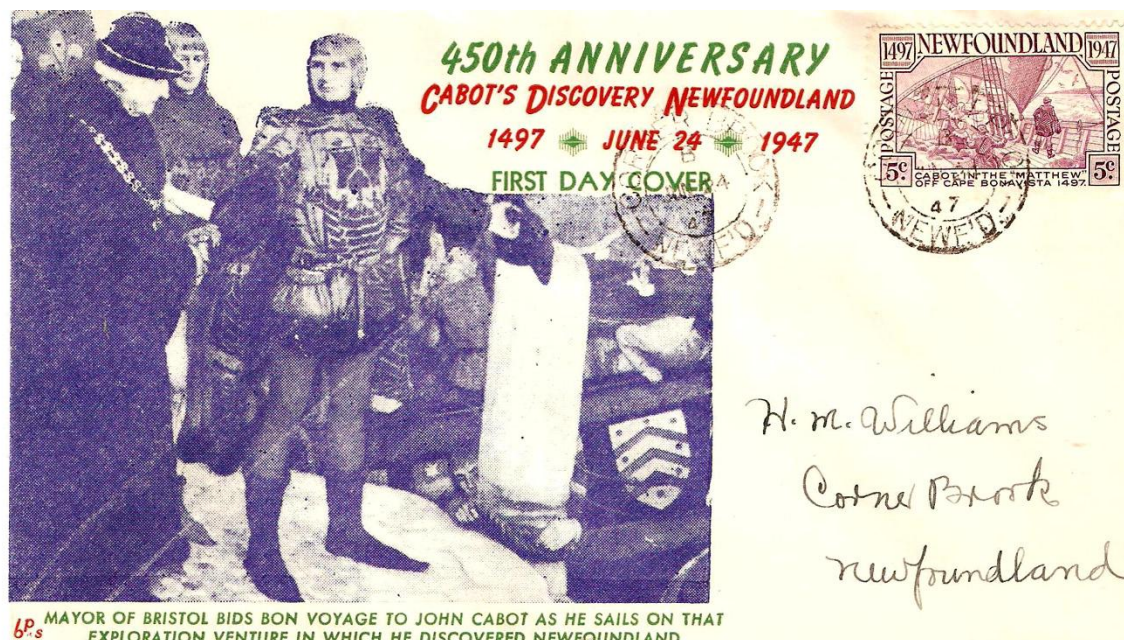 450th ANNIVERSARY
CABOT'S DISCOVERY NEWFOUNDLAND
1497 JUNE 24 1947
FIRST DAY COVER
1497 NEWFOUNDLAND 1947
POSTAGE
POSTAGE
5c
5c
CABOT IN THE "MATTHEW"
OFF CAPE BONAVISTA 1497.
47
NEWF'D
NEWF'D
H. M. Williams
Corner Brook
Newfoundland
MAYOR OF BRISTOL BIDS BON VOYAGE TO JOHN CABOT AS HE SAILS ON THAT
EXPLORATION VENTURE IN WHICH HE DISCOVERED NEWFOUNDLAND